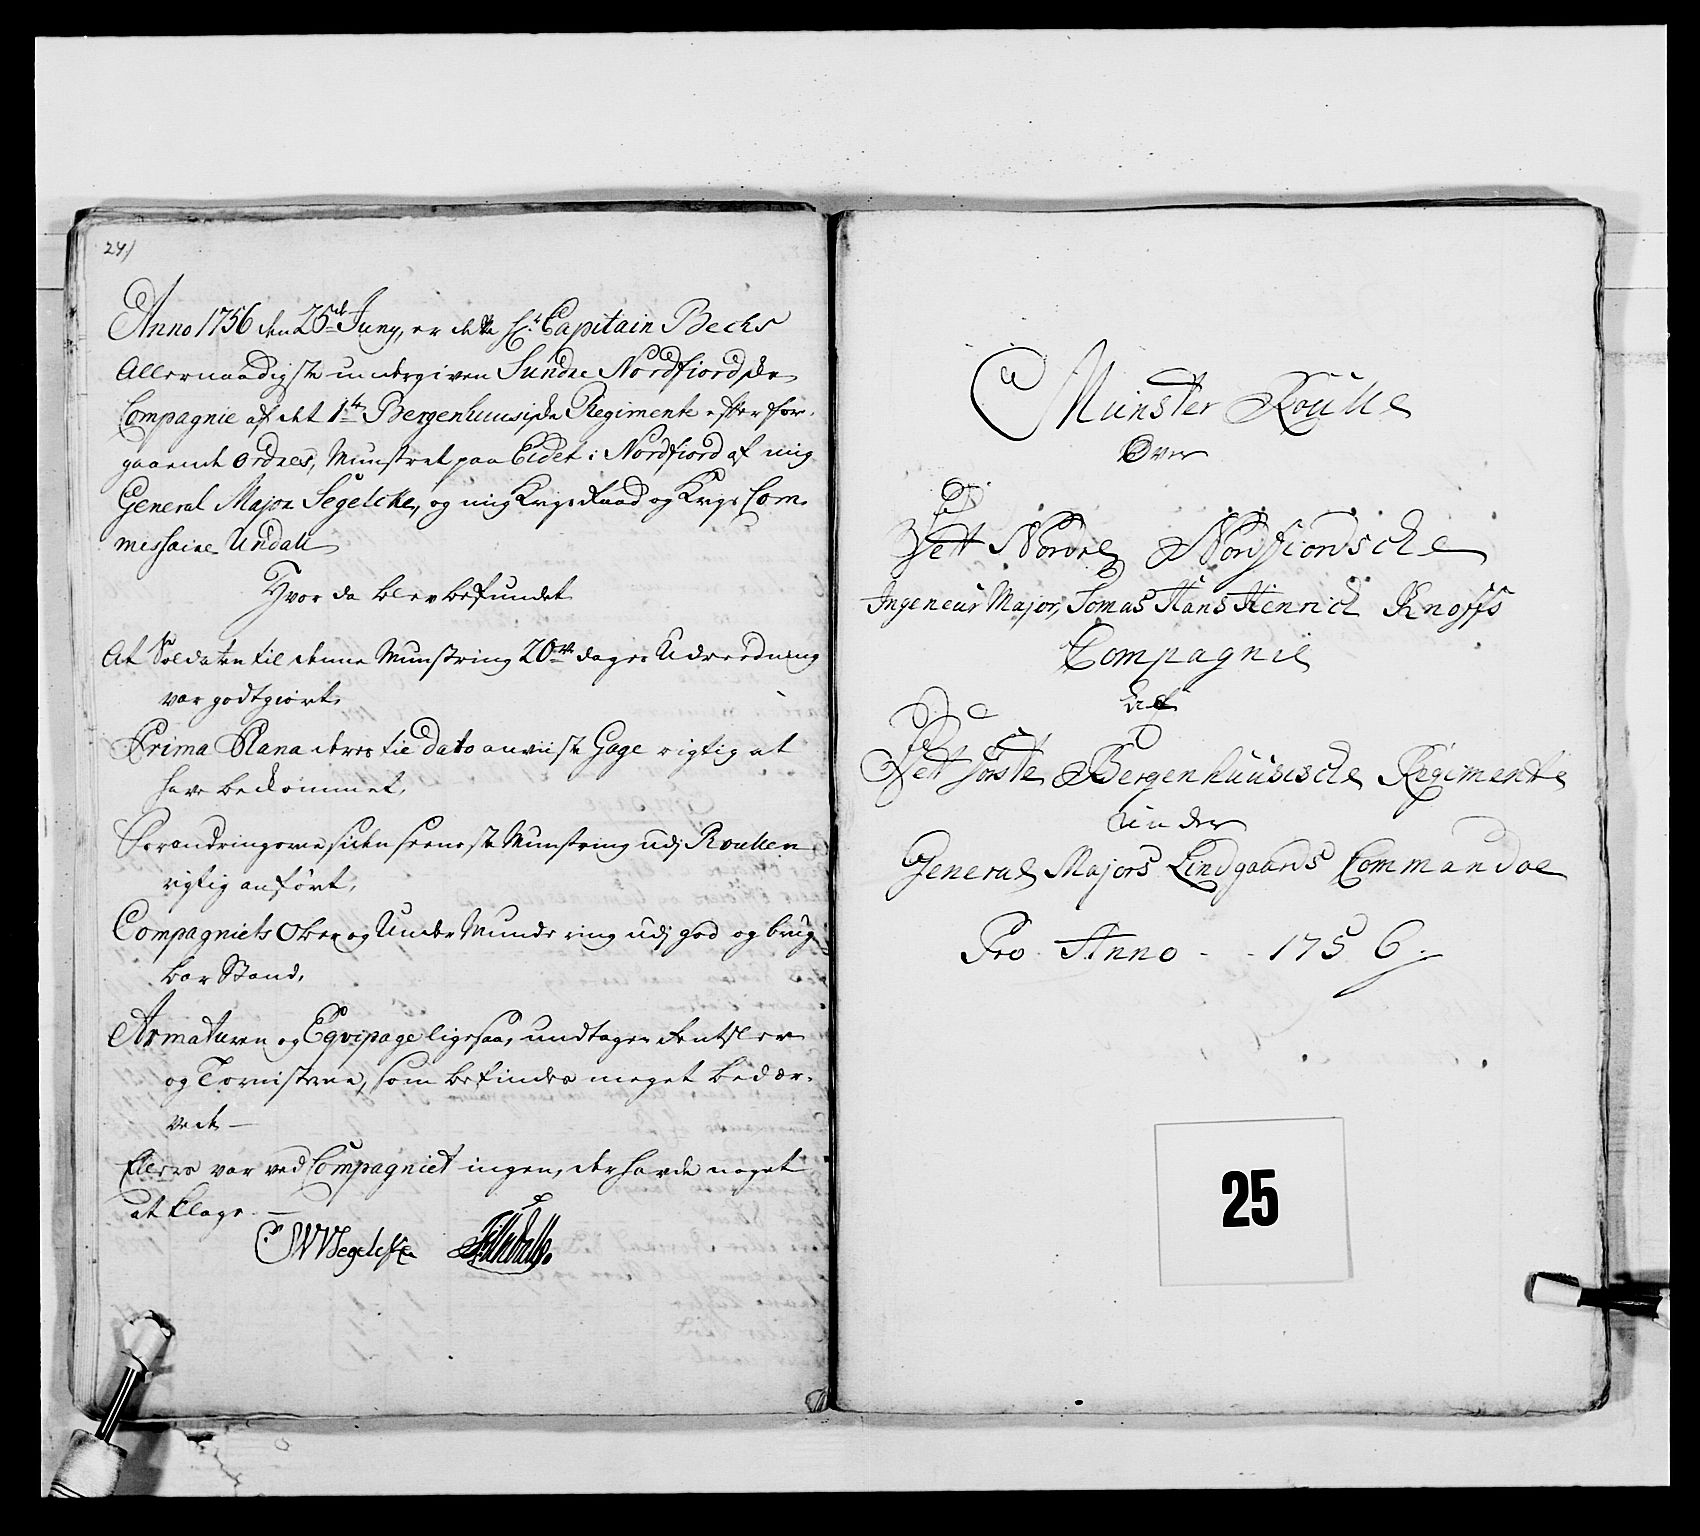 24/
Anno 1756 den 25de Juny, er dette Hr: Capitain Bechs
Allernaadigste undergiven Sundre Nordfiordske
Compagnie af det 1te Bergenhuusiske Regimente efter for-
gaaende Ordres, Munstret paa Eidet i Nordfiord af mig
General Major Segelcke, og mig Krigs Raad og Krigs Com-
missaire Undall
Hvor da blev befundet
At Soldaten til denne Munstring 20ve dages Udreedning
var godtgiort.
Prima Plana deres til dato anviiste Gage rigtig at
have bekommet.
Forandringerne siden seeneste Munstring udj Roullen
rigtig anført.
Compagniets Ober og Under Mundering udj god og brug-
bar Stand.
Armaturen og Eqvipage ligesaa, undtagen
og Tornistrene, som befindes meget bedær-
vede —
Ellers var ved Compagniet ingen, der havde noget
at klage. —
CWVSegelcke
Münster Roulle
Over
Dett Nordre Nordfiordsche
Ingeneur Major, Tomas Hans Henrich Knoffs
Compagnie
Af
Dett förste Bergenhuusische Regimente
under
General Majors Lindgaards Commandoe
Pro Anno - - 1756:
25